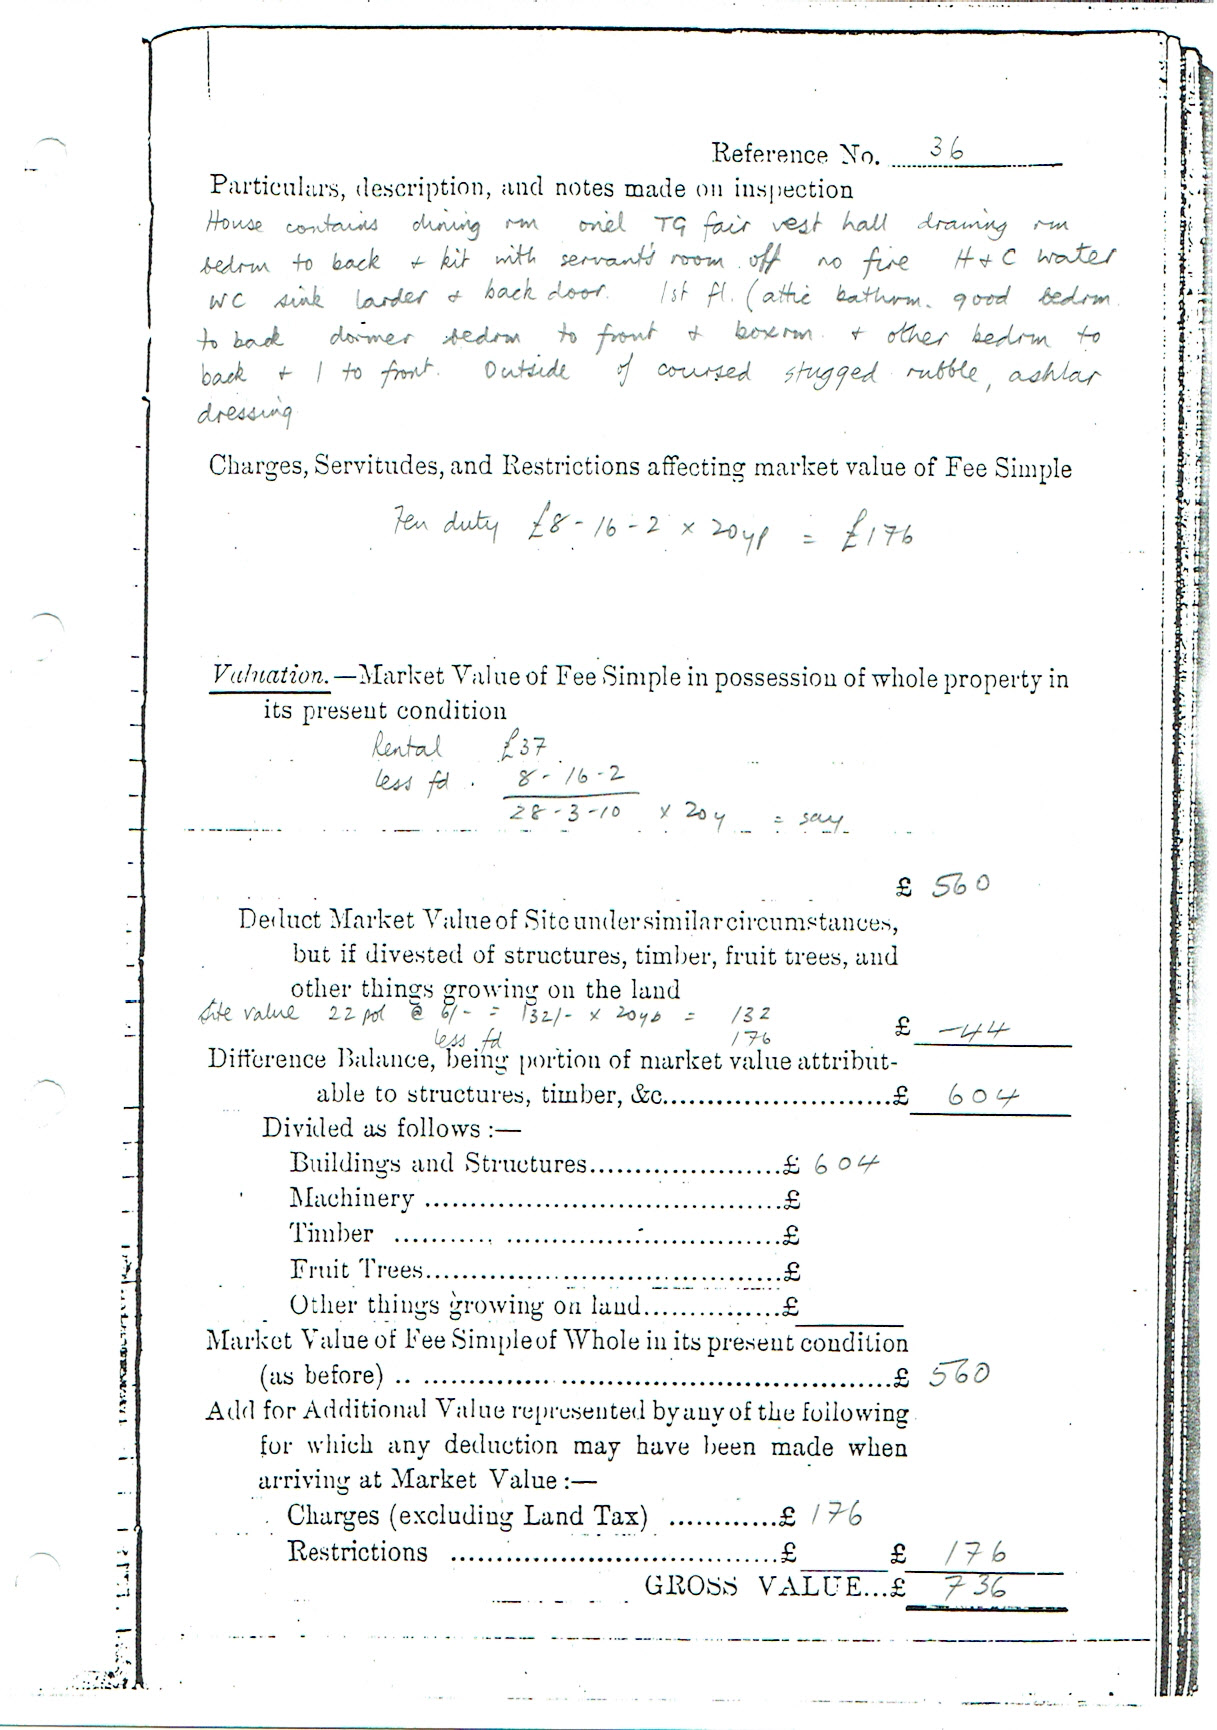 Reference No. 36
Particulars, description, and notes made on inspection
House contains dining rm oriel TG fair vest hall drawing rm
bedrm to back + kit with servant's room off no fire H & C water
WC sink larder & back door. 1st fl. (attic bathrm. good bedrm
to back dormer bedrm to front + boxrm. + other bedrm to
back + 1 to front. Outside of coursed stugged rubble, ashlar
dressing
Charges, Servitudes, and Restrictions affecting market value of Fee Simple
Feu duty £8-16-2 x 20yp = £176
Valuation.—Market Value of Fee Simple in possession of whole property in
its present condition
Rental £37
less fd. 8-16-2
28-3-10 x 20y = say
£ 560
Deduct Market Value of Site under similar circumstances,
but if divested of structures, timber, fruit trees, and
other things growing on the land
Site value 22 pol @ 6/- = 132/- x 20yp = 132
less fd 176 £ -44
Difference Balance, being portion of market value attribut-
able to structures, timber, &c.........................£ 604
Divided as follows :—
Buildings and Structures......................£ 604
Machinery .....................................£
Timber .......... ............................£
Fruit Trees...................................£
Other things growing on land..............£
Market Value of Fee Simple of Whole in its present condition
(as before) .. ...............................................£ 560
Add for Additional Value represented by any of the following
for which any deduction may have been made when
arriving at Market Value :—
Charges (excluding Land Tax) ............£ 176
Restrictions .................................£ £ 176
GROSS VALUE...£ 736